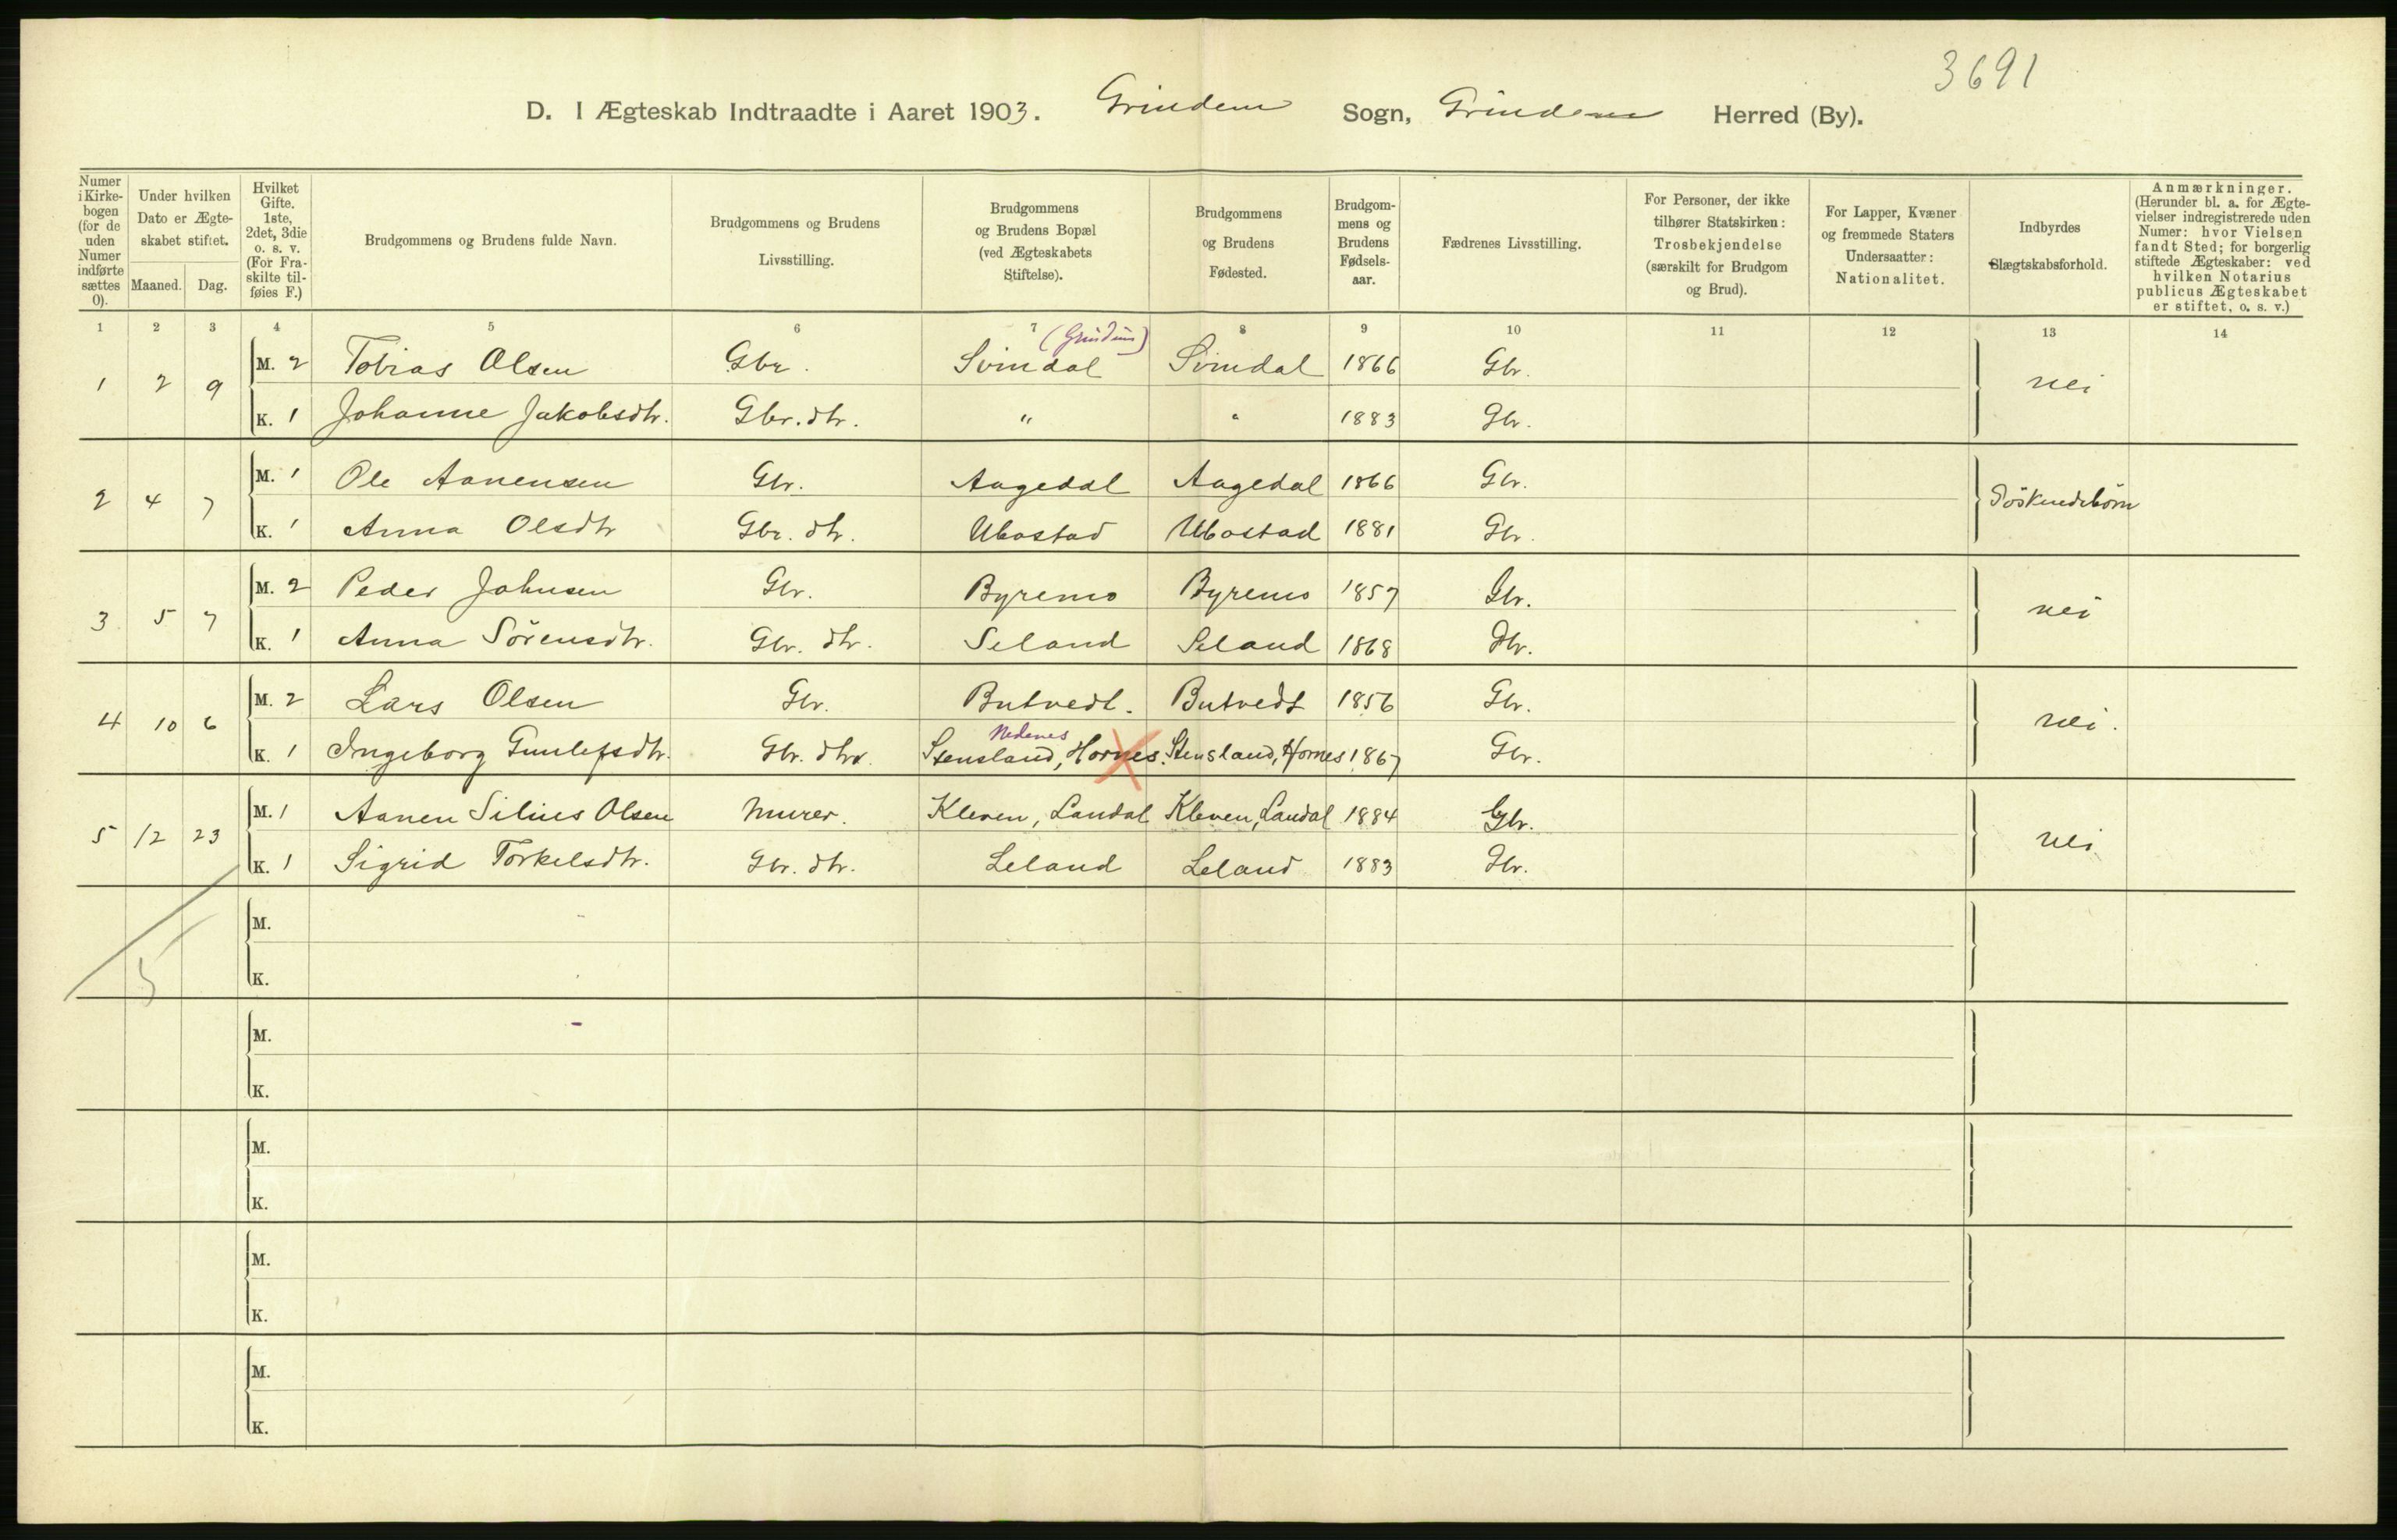 3691
D. I Ægteskab Indtraadte i Aaret 1903. Grindem Sogn, Grindem Herred (By).
Numer i Kirkebogen (for de uden Numer indførte sættes 0).
Under hvilken Dato er Ægteskabet stiftet.
Maaned. Dag.
Hvilket Gifte. 1ste, 2det, 3die o. s. v. (For Fraskilte tilføies F.)
Brudgommens og Brudens fulde Navn.
Brudgommens og Brudens Livsstilling.
Brudgommens og Brudens Bopæl (ved Ægteskabets Stiftelse).
Brudgommens og Brudens Fødested.
Brudgommens og Brudens Fødselsaar.
Fædrenes Livsstilling.
For Personer, der ikke tilhører Statskirken: Trosbekjendelse (særskilt for Brudgom og Brud).
For Lapper, Kvæner og fremmede Staters Undersaatter: Nationalitet.
Indbyrdes Slægtskabsforhold.
Anmærkninger. (Herunder bl. a. for Ægtevielser indregistrerede uden Numer: hvor Vielsen fandt Sted; for borgerlig stiftede Ægteskaber: ved hvilken Notarius publicus Ægteskabet er stiftet, o. s. v.)
1 2 3 4 5 6 7 8 9 10 11 12 13 14
(Grindum)
1 2 9 M. 2 Tobias Olsen Gbr. Svindal Svindal 1866 Gbr. nei
K. 1 Johanne Jakobsdtr. Gbr. dtr. " " 1883 Gbr.
2 4 7 M. 1 Ole Aanensen Gbr. Aagedal Aagedal 1866 Gbr. Söskendebörn
K. 1 Anna Olsdtr Gbr. dtr. Ubostad Ubostad 1881 Gbr.
3 5 7 M. 2 Peder Johnsen Gbr. Byremo Byremo 1857 Gbr. nei
K. 1 Anna Sörensdtr. Gbr. dtr. Seland Seland 1868 Gbr.
4 10 6 M. 2 Lars Olsen Gbr. Butvedt. Butvedt 1856 Gbr. nei.
Nedenes
K. 1 Ingeborg Gunlefsdtr. Gbr. dtr. Stensland, Hornes. Stensland, Hornes 1867 Gbr.
5 12 23 M. 1 Aanen Silius Olsen Murer. Kleven, Laudal Kleven, Laudal 1884 Gbr. nei
K. 1 Sigrid Torkelsdtr. Gbr. dtr. Leland Leland 1883 Gbr.
M.
5
K.
M.
K.
M.
K.
M.
K.
M.
K.